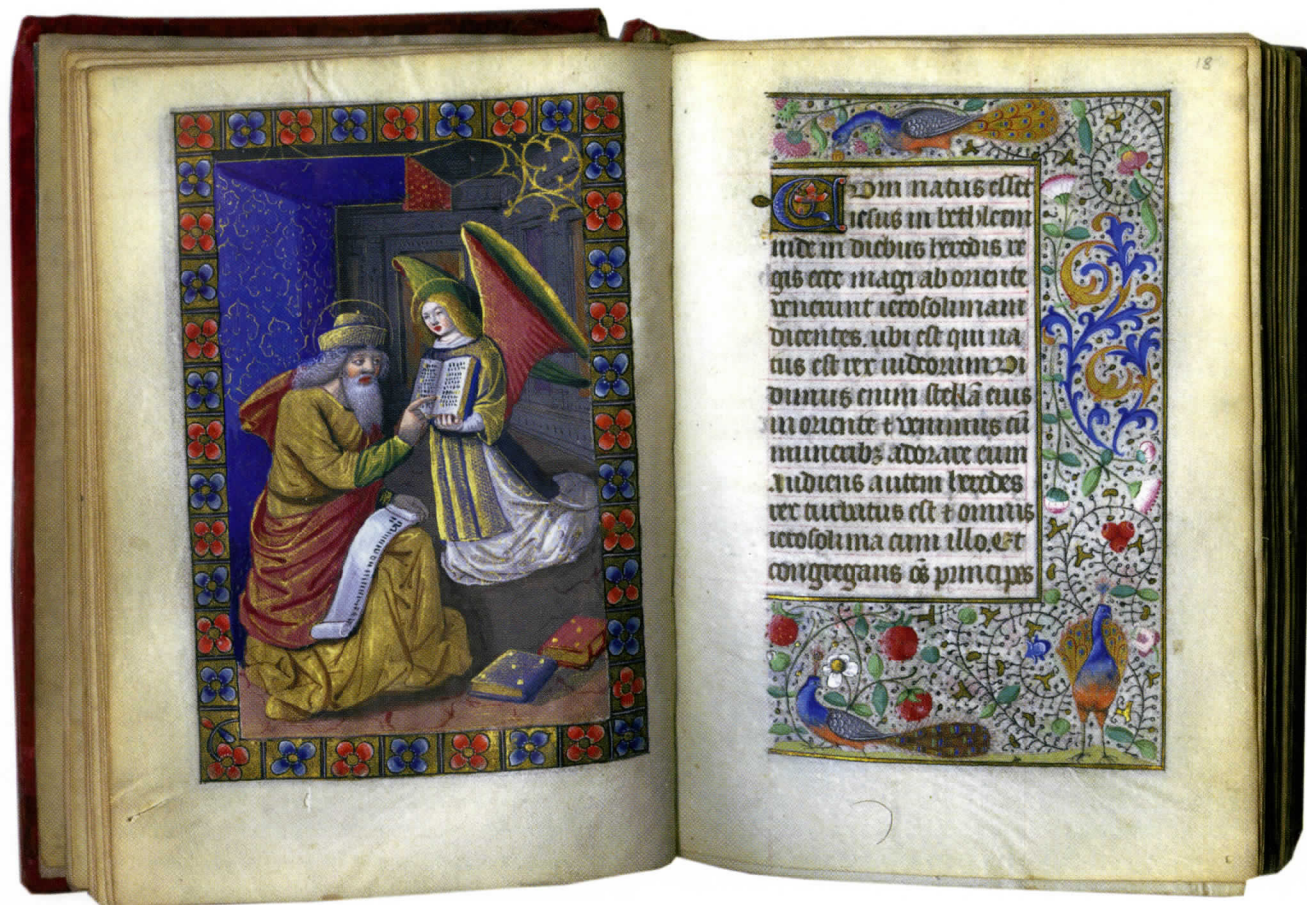 18
Cum natus esset
iesus in bethleem
iude in diebus herodis re
gis ecce magi ab oriente
venerunt ierosolimam
dicentes. ubi est qui na
tus est rex iudeorum Vi
dimus enim stellā eius
in oriente ⁊ venimus cū
munerib⁊ adorare eum
Audiens autem herodes
rex turbatus est ⁊ omnis
ierosolima cum illo. Et
congregans oēs principes